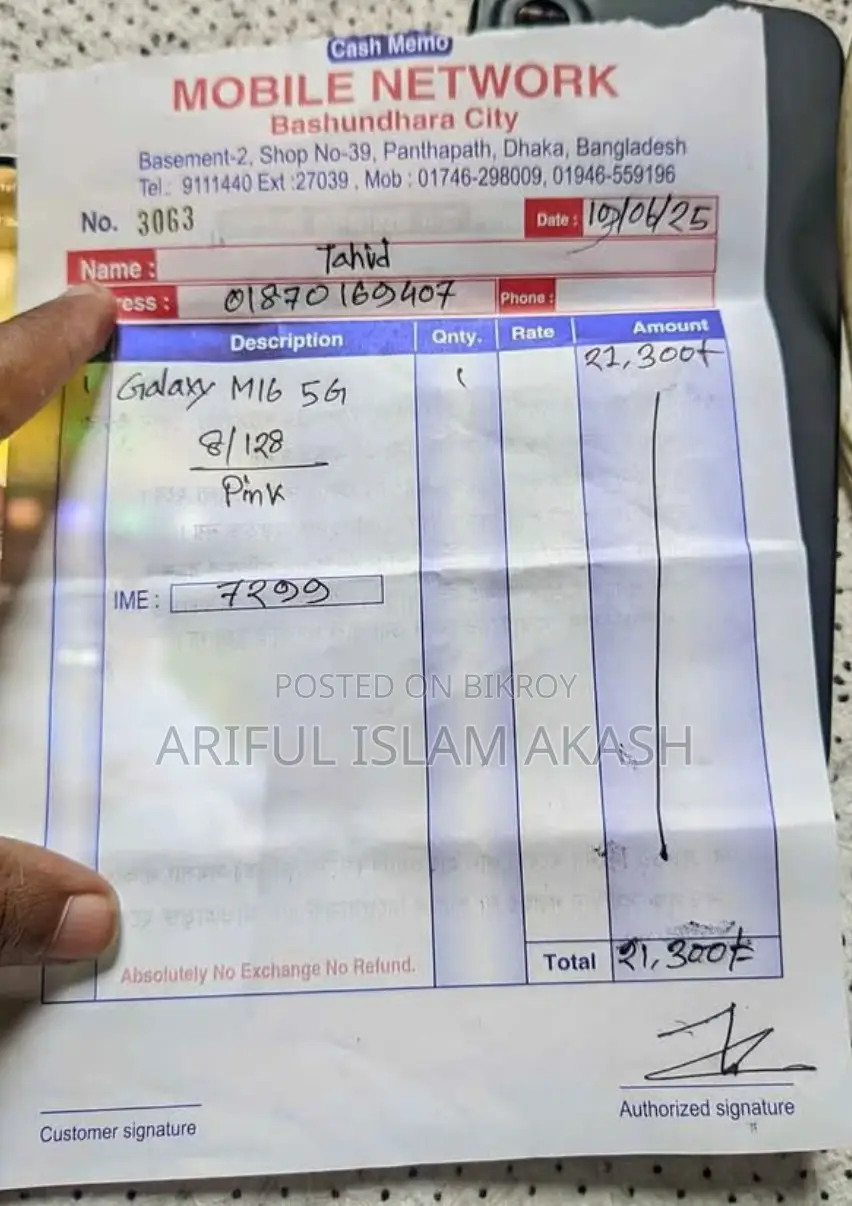 Cash Memo
MOBILE NETWORK
Bashundhara City
Basement-2, Shop No-39, Panthapath, Dhaka, Bangladesh
Tel.: 9111440 Ext :27039 . Mob : 01746-298009, 01946-559196
No. 3063 Date : /06/25
Name : Tahid
ress : 01870169407 Phone :
Description Qnty. Rate Amount
1 Galaxy M16 5G 1 21,300/-
8/128
Pink
IME : 7299
POSTED ON BIKROY
ARIFUL ISLAM AKASH
Absolutely No Exchange No Refund.
Total 21,300/-
Customer signature
Authorized signature